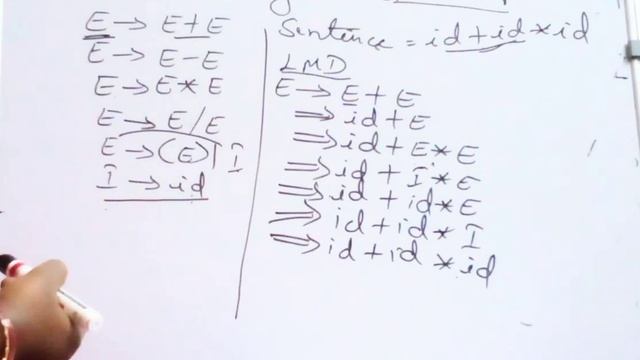 E → E + E
E → E - E
E → E * E
E → E / E
E → (E) | I
I → id
Sentence = id + id * id
LMD
E → E + E
⇒ id + E
⇒ id + E * E
⇒ id + I * E
⇒ id + id * E
⇒ id + id * I
⇒ id + id * id